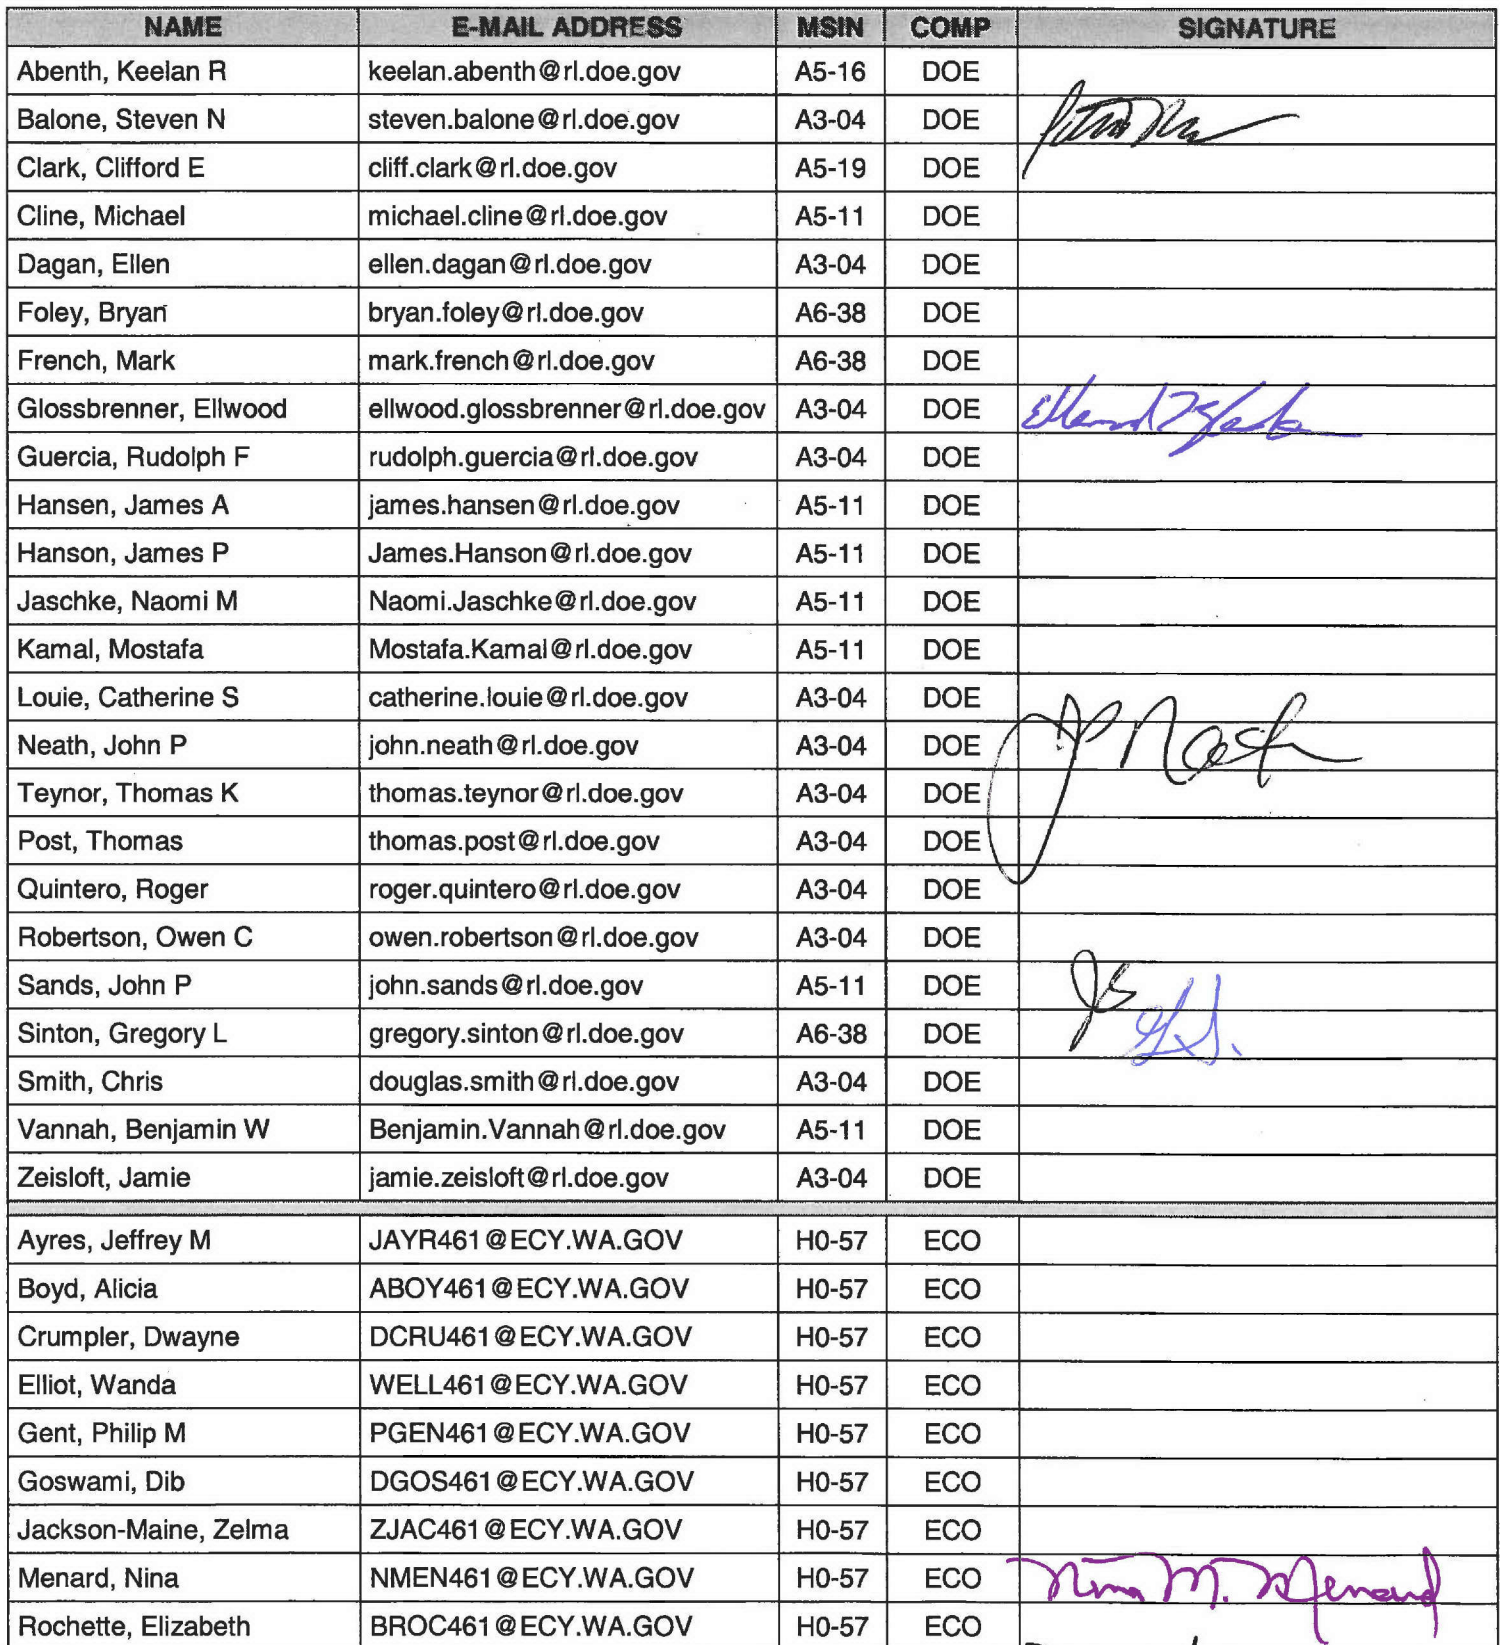 NAME E-MAIL ADDRESS MSIN COMP SIGNATURE
Abenth, Keelan R keelan.abenth@rl.doe.gov A5-16 DOE
Balone, Steven N steven.balone@rl.doe.gov A3-04 DOE
Clark, Clifford E cliff.clark@rl.doe.gov A5-19 DOE
Cline, Michael michael.cline@rl.doe.gov A5-11 DOE
Dagan, Ellen ellen.dagan@rl.doe.gov A3-04 DOE
Foley, Bryan bryan.foley@rl.doe.gov A6-38 DOE
French, Mark mark.french@rl.doe.gov A6-38 DOE
Glossbrenner, Ellwood ellwood.glossbrenner@rl.doe.gov A3-04 DOE
Guercia, Rudolph F rudolph.guercia@rl.doe.gov A3-04 DOE
Hansen, James A james.hansen@rl.doe.gov A5-11 DOE
Hanson, James P James.Hanson@rl.doe.gov A5-11 DOE
Jaschke, Naomi M Naomi.Jaschke@rl.doe.gov A5-11 DOE
Kamal, Mostafa Mostafa.Kamal@rl.doe.gov A5-11 DOE
Louie, Catherine S catherine.louie@rl.doe.gov A3-04 DOE
Neath, John P john.neath@rl.doe.gov A3-04 DOE
Teynor, Thomas K thomas.teynor@rl.doe.gov A3-04 DOE
Post, Thomas thomas.post@rl.doe.gov A3-04 DOE
Quintero, Roger roger.quintero@rl.doe.gov A3-04 DOE
Robertson, Owen C owen.robertson@rl.doe.gov A3-04 DOE
Sands, John P john.sands@rl.doe.gov A5-11 DOE JS
Sinton, Gregory L gregory.sinton@rl.doe.gov A6-38 DOE G.S.
Smith, Chris douglas.smith@rl.doe.gov A3-04 DOE
Vannah, Benjamin W Benjamin.Vannah@rl.doe.gov A5-11 DOE
Zeisloft, Jamie jamie.zeisloft@rl.doe.gov A3-04 DOE
Ayres, Jeffrey M JAYR461@ECY.WA.GOV H0-57 ECO
Boyd, Alicia ABOY461@ECY.WA.GOV H0-57 ECO
Crumpler, Dwayne DCRU461@ECY.WA.GOV H0-57 ECO
Elliot, Wanda WELL461@ECY.WA.GOV H0-57 ECO
Gent, Philip M PGEN461@ECY.WA.GOV H0-57 ECO
Goswami, Dib DGOS461@ECY.WA.GOV H0-57 ECO
Jackson-Maine, Zelma ZJAC461@ECY.WA.GOV H0-57 ECO
Menard, Nina NMEN461@ECY.WA.GOV H0-57 ECO Nina M. Menard
Rochette, Elizabeth BROC461@ECY.WA.GOV H0-57 ECO